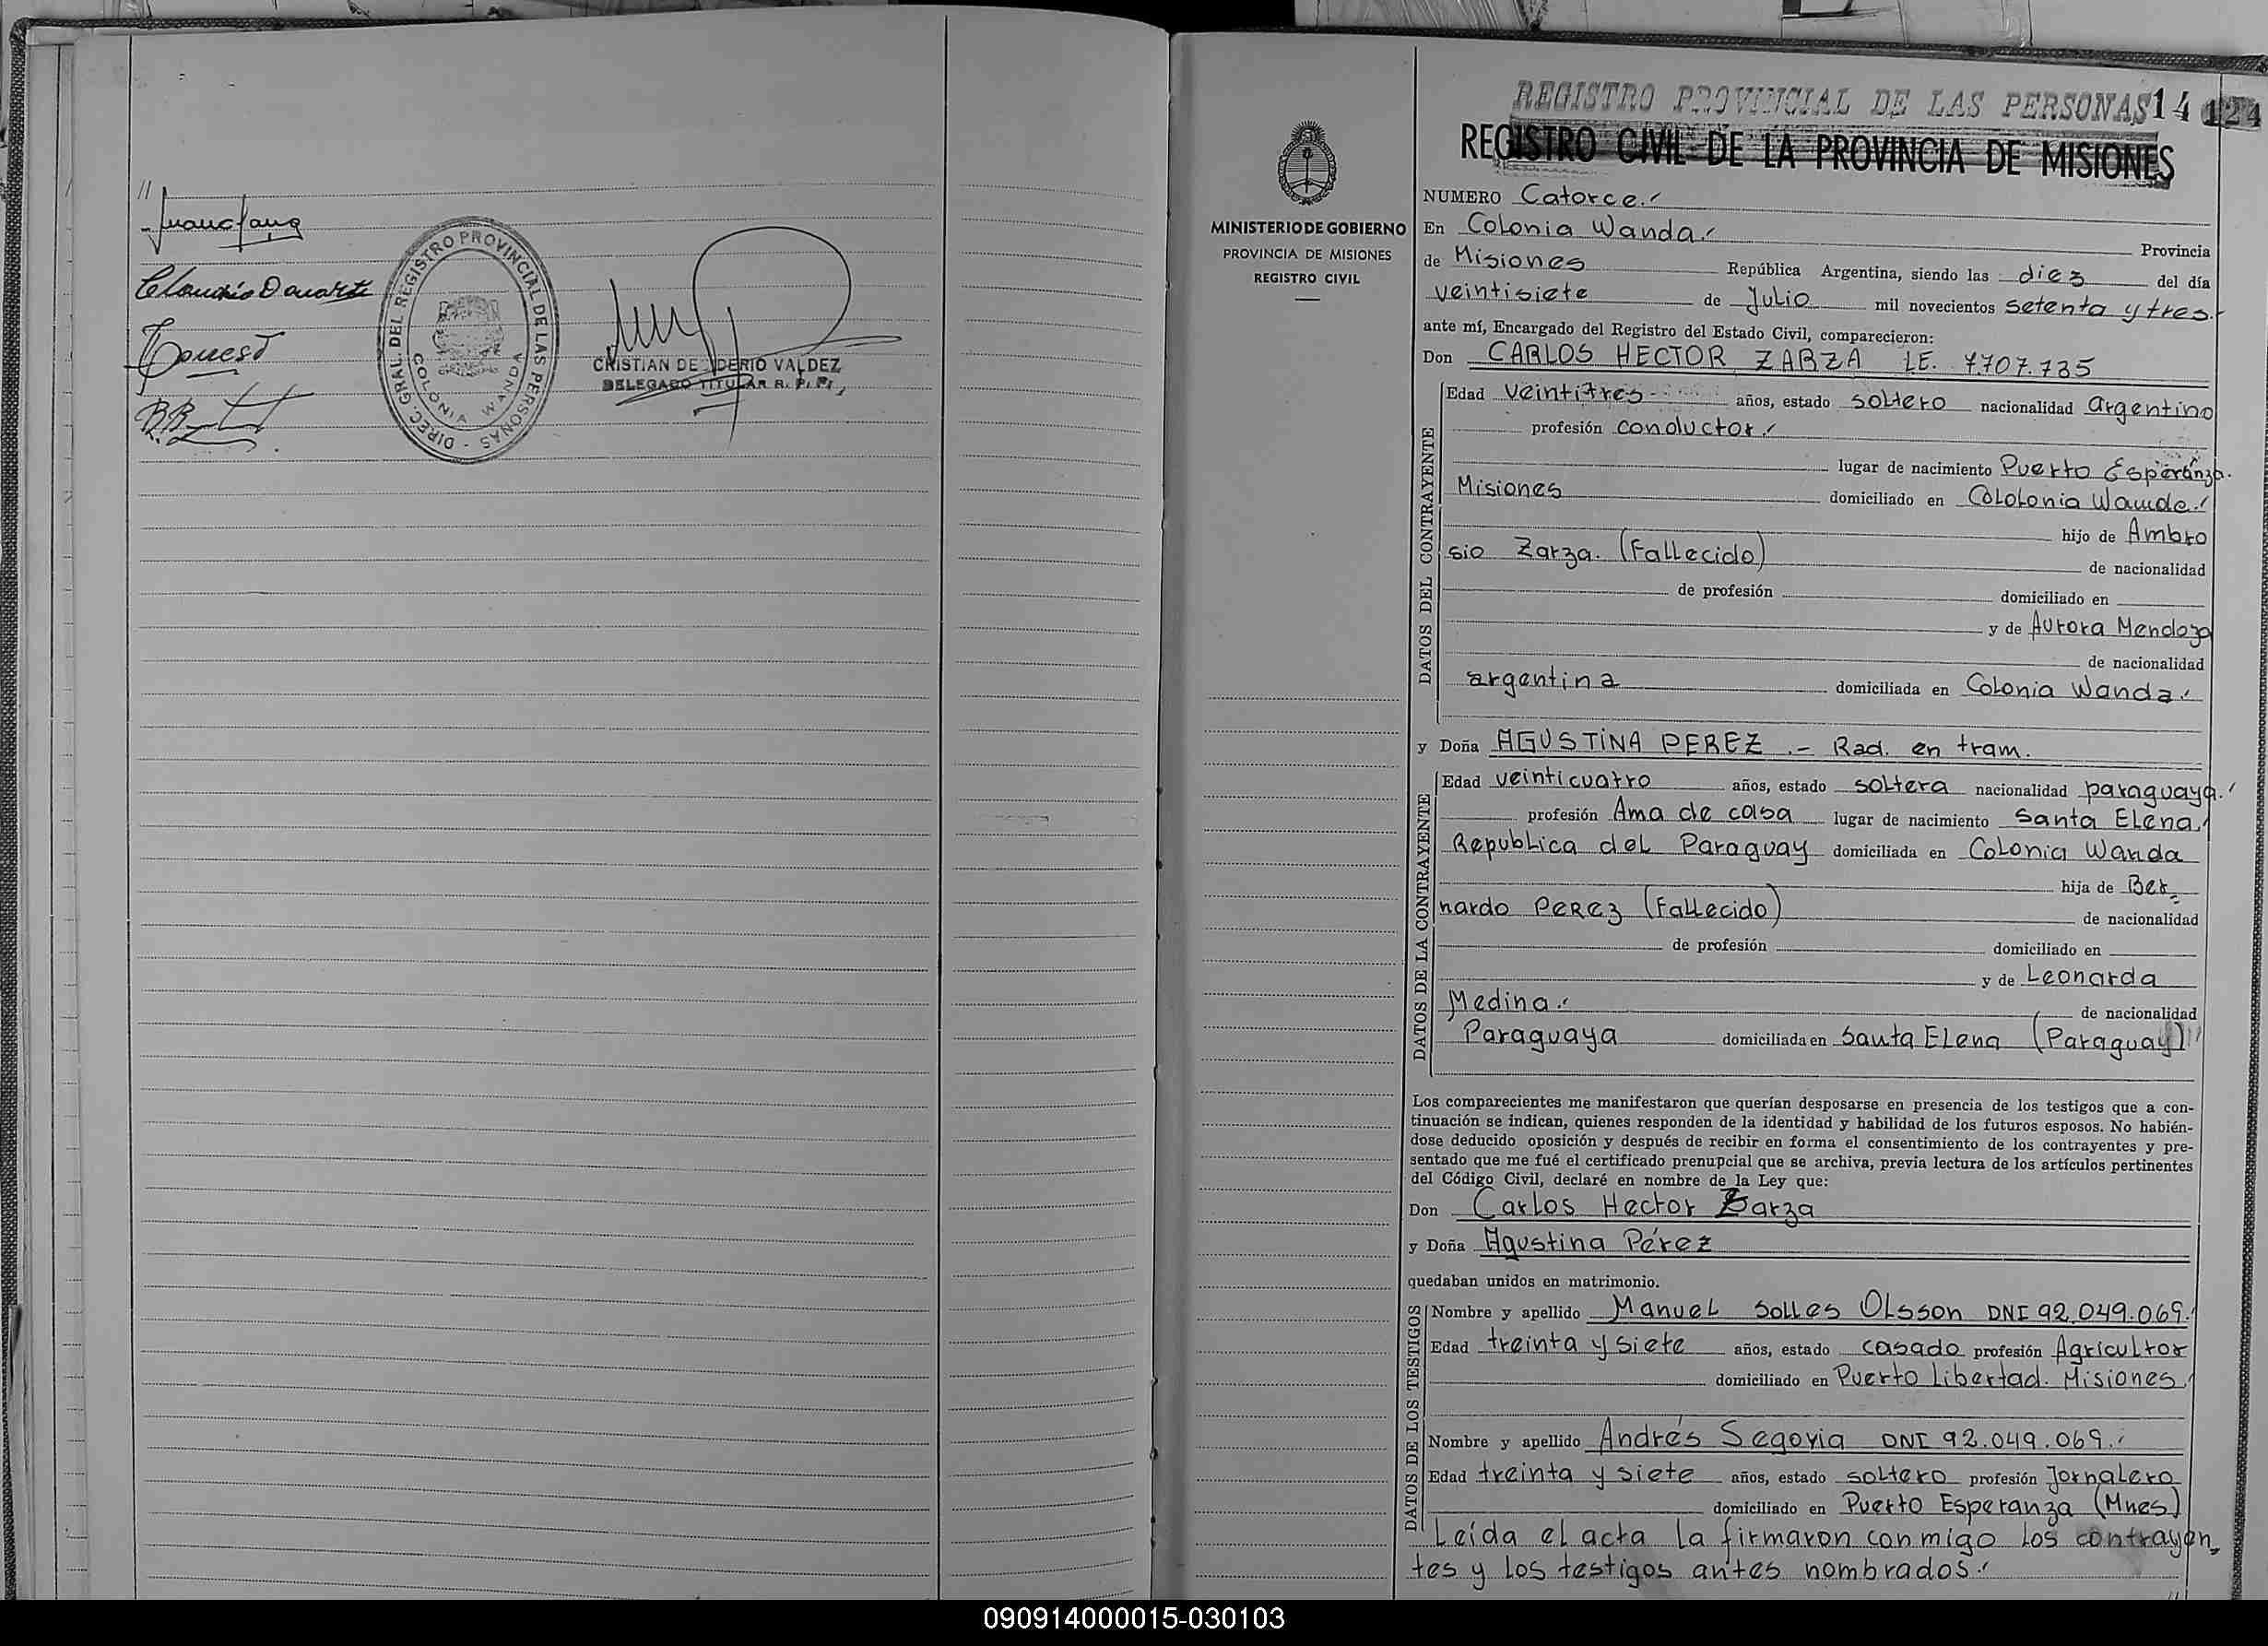 //
REGISTRO PROVINCIAL DEL
DIREC. GRAL DEL REGISTRO PROVINCIAL DE LAS PERSONAS -
COLONIA WANDA
CRISTIAN DE DERIO VALDEZ
DELEGADO TITULAR R. P. P.
MINISTERIO DE GOBIERNO
PROVINCIA DE MISIONES
REGISTRO CIVIL
REGISTRO PROVINCIAL DE LAS PERSONAS 14 124
REGISTRO CIVIL DE LA PROVINCIA DE MISIONES
NUMERO Catorce.
En Colonia Wanda. Provincia
de Misiones República Argentina, siendo las diez del día
veintisiete de Julio mil novecientos setenta y tres.
ante mí, Encargado del Registro del Estado Civil, comparecieron:
Don CARLOS HECTOR ZARZA LE. 7.707.735
DATOS DEL CONTRAYENTE
Edad veintitres años, estado soltero nacionalidad argentino
profesión conductor.
lugar de nacimiento Puerto Esperanza.
Misiones domiciliado en Cololonia Wamde.
hijo de Ambro
sio Zarza. (Fallecido) de nacionalidad
de profesión domiciliado en
y de Aurora Mendoza
de nacionalidad
argentina domiciliada en Colonia Wanda.
y Doña AGUSTINA PEREZ .- Rad. en tram.
DATOS DE LA CONTRAYENTE
Edad veinticuatro años, estado soltera nacionalidad paraguaya.
profesión Ama de casa lugar de nacimiento Santa Elena,
Republica del Paraguay domiciliada en Colonia Wanda
hija de Ber=
nardo Perez (Fallecido) de nacionalidad
de profesión domiciliado en
y de Leonarda
Medina. de nacionalidad
Paraguaya domiciliada en Santa Elena (Paraguay)
Los comparecientes me manifestaron que querían desposarse en presencia de los testigos que a con-
tinuación se indican, quienes responden de la identidad y habilidad de los futuros esposos. No habién-
dose deducido oposición y después de recibir en forma el consentimiento de los contrayentes y pre-
sentado que me fué el certificado prenupcial que se archiva, previa lectura de los artículos pertinentes
del Código Civil, declaré en nombre de la Ley que:
Don Carlos Hector Zarza
y Doña Agustina Pérez
quedaban unidos en matrimonio.
DATOS DE LOS TESTIGOS
Nombre y apellido Manuel Solles Olsson DNI 92.049.069.
Edad treinta y siete años, estado casado profesión Agricultor
domiciliado en Puerto Libertad. Misiones
Nombre y apellido Andrés Segovia DNI 92.049.069.
Edad treinta y siete años, estado soltero profesión Jornalero
domiciliado en Puerto Esperanza (Mnes)
Leída el acta la firmaron conmigo los contrayen=
tes y los testigos antes nombrados.
//
090914000015-030103